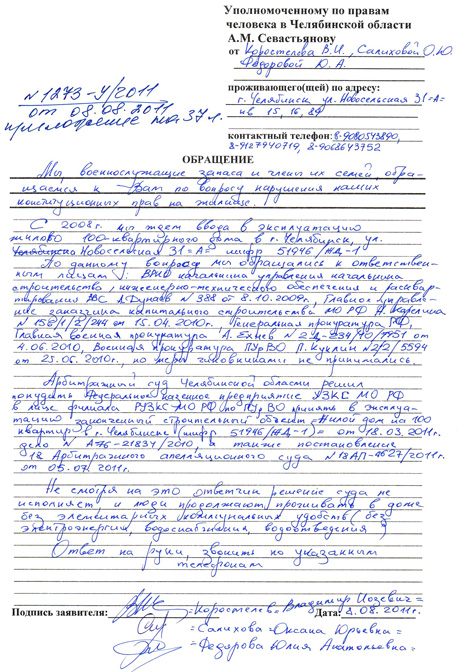 Уполномоченному по правам
человека в Челябинской области
А.М. Севастьянову
от Коростелева В.И., Салиховой О.Ю.
Федоровой Ю.А.
проживающего(щей) по адресу:
г. Челябинск ул. Новосельская 31=А=
кв 15, 16, 84
контактный телефон: 8-9080543890,
8-9127940719, 8-9068643752
№1273-У/2011
от 08.08.2011
приложение на 37 л.
ОБРАЩЕНИЕ
Мы военнослужащие запаса и члены их семей, обра-
щаемся к Вам по вопросу нарушения наших
конституционных прав на жилище.
С 2008г. мы ждем ввода в эксплуатацию
жилого 100-квартирного дома в г. Челябинск, ул.
Новосельская 31=А= шифр 51946/ЖД-1
По данному вопросу мы обращались к ответствен-
ным лицам: ВРИО начальника управления начальника
строительства, инженерно-технического обеспечения и расквар-
тирования ВС Л Дунаев №388 от 8.10.2009г, Главное управле-
ние заказчика капитального строительства МО РФ А.
№158/1/2/244 от 15.04.2010г. Генеральная прокуратура РФ,
Главная военная прокуратура А. от
4.06.2010, Военная прокуратура ПУрВО П. Куклин №2/2/5594
от 25.06.2010г., но меры чиновниками не принимались.
Арбитражный суд Челябинской области решил
понудить Федеральное казенное предприятие УЗКС МО РФ
в лице филиала РУЗКС МО РФ по ПУрВО принять в эксплуа-
тацию законченный строительный объект "Жилой дом на 100
квартир в г. Челябинске (шифр 51946/ЖД-1)= от 18.03.2011г.
дело № А76-21837/2010 а также постановление
18 Арбитражного апелляционного суда №18АП-4627/2011г.
от 05.07.2011г.
Не смотря на это ответчик решение суда не
исполняет и люди продолжают проживать в доме
без элементарных коммунальных удобств (без
электроэнергии, водоснабжения, водоотведения)
Ответ на руки, звонить по указанным
телефонам
Подпись заявителя: =Коростелев=Владимир Иозевич=
Дата: 2.08.2011г.
=Салихова =Оксана Юрьевна=
=Федорова Юлия Анатольевна=